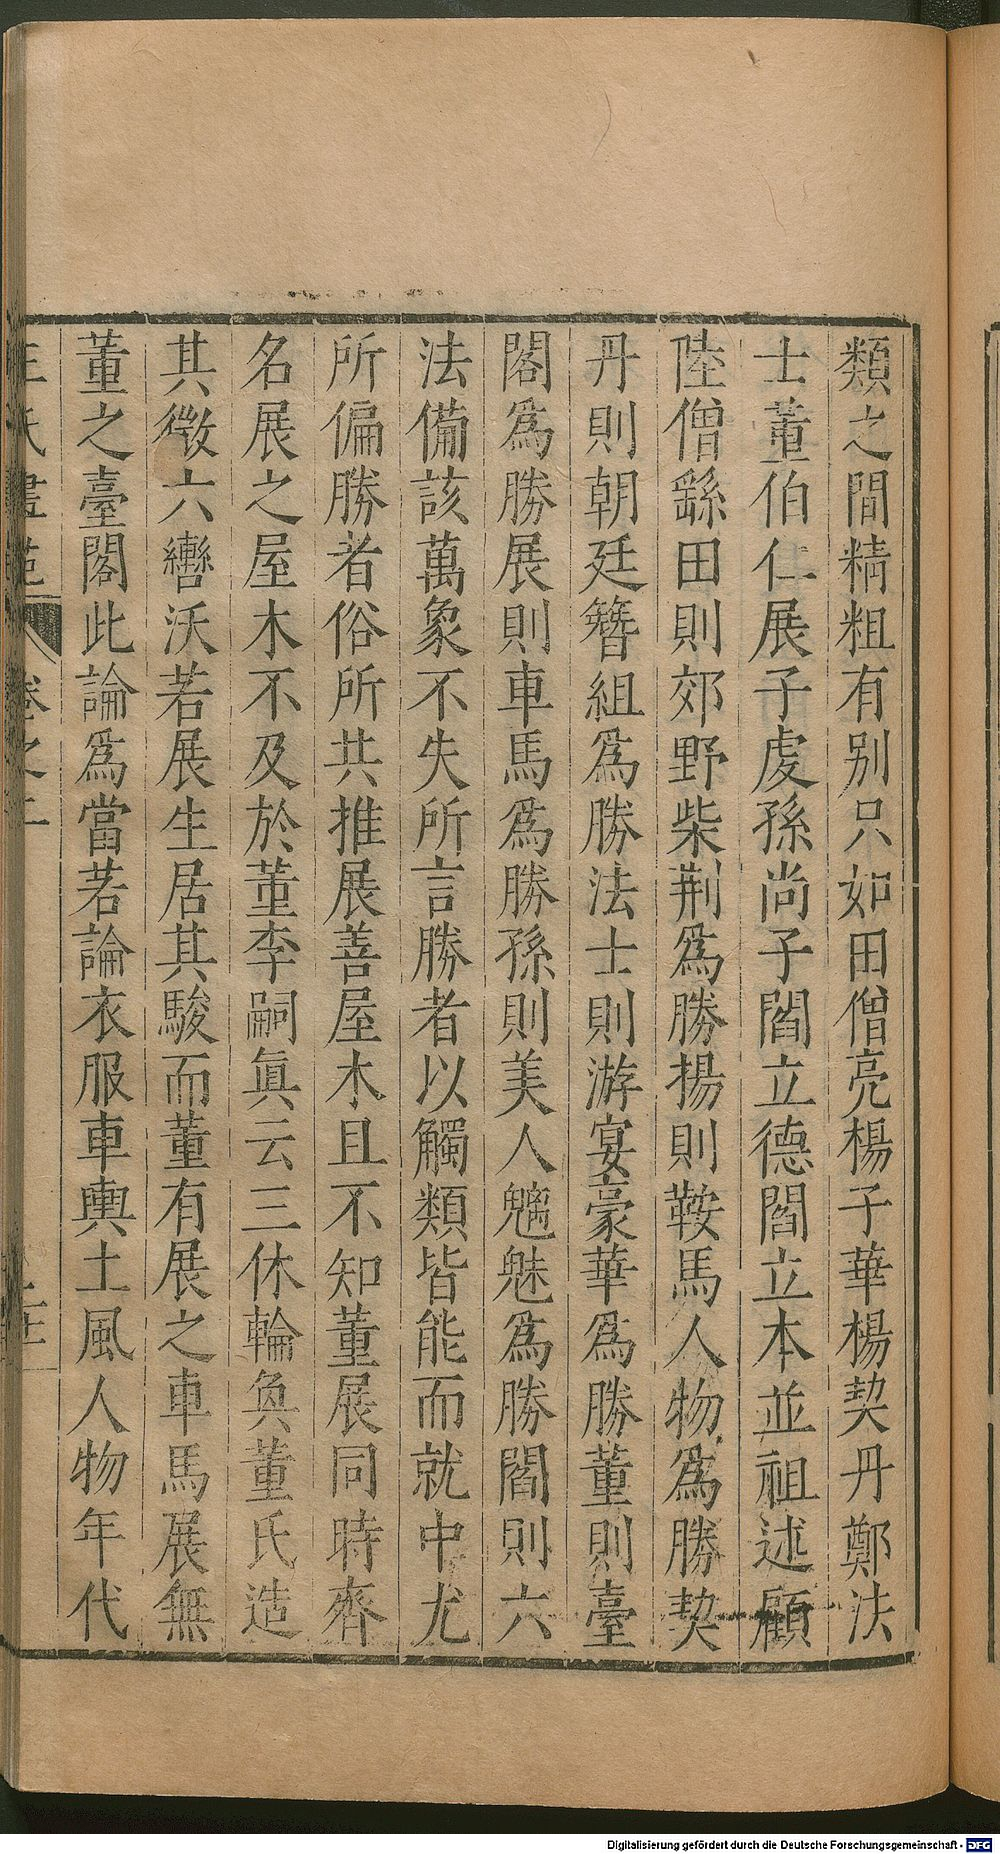 類之間精粗有别只如田僧亮楊子華楊契丹鄭法
士董伯仁展子虔孫尚子閻立德閻立本並祖述顧
陸僧繇田則郊野柴荆爲勝揚則鞍馬人物爲勝契
丹則朝廷簪組爲勝法士則游宴豪華爲勝董則臺
閣爲勝展則車馬爲勝孫則美人魑魅爲勝閻則六
法備該萬象不失所言勝者以觸類皆能而就中尤
所偏勝者俗所共推展善屋木且不知董展同時齊
名展之屋木不及於董李嗣眞云三休輪奐董氏造
其微六轡沃若展生居其駿而董有展之車馬展無
董之臺閣此論爲當若論衣服車輿土風人物年代
王氏畫苑 卷之二
Digitalisierung gefördert durch die Deutsche Forschungsgemeinschaft - DFG